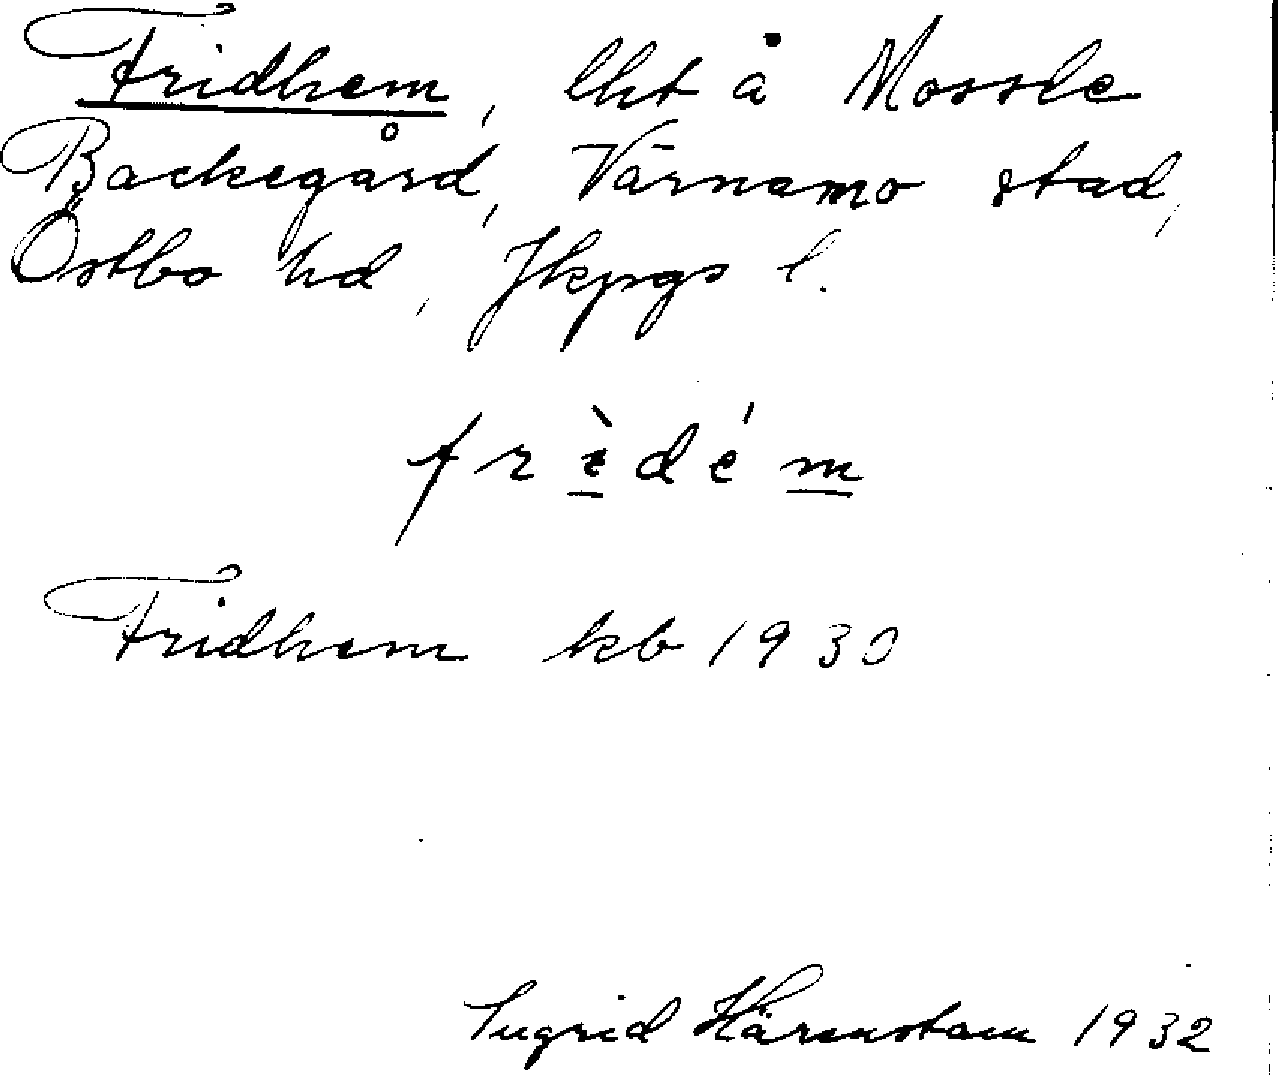 Fridhem, lht å Mossle
Backegård, Värnamo stad,
Östbo hd, Jkpgs l.
frèdém
Fridhem kb 1930
Ingrid Härenstam 1932